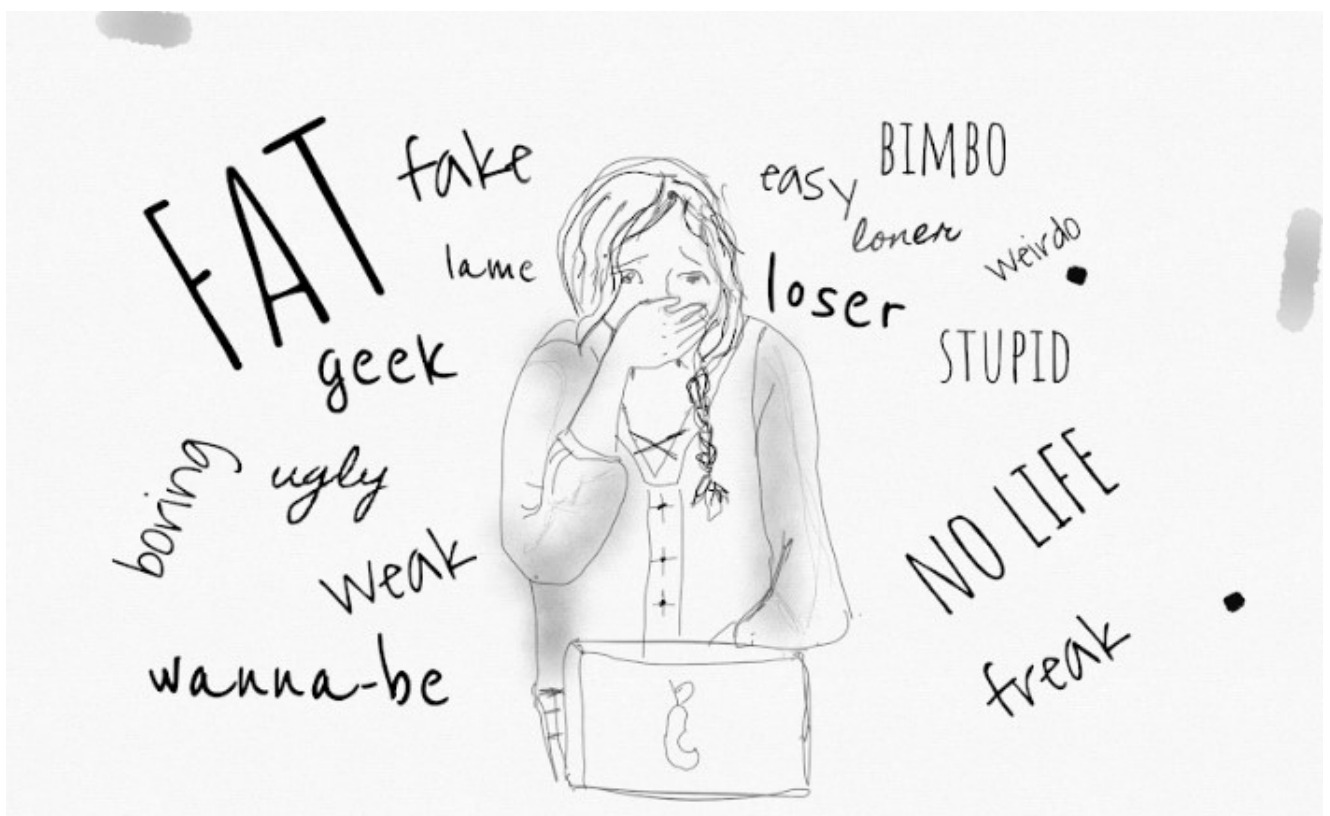 FAT
fake
lame
geek
boring
ugly
weak
wanna-be
easy
BIMBO
loner
weirdo
loser
STUPID
NO LIFE
freak